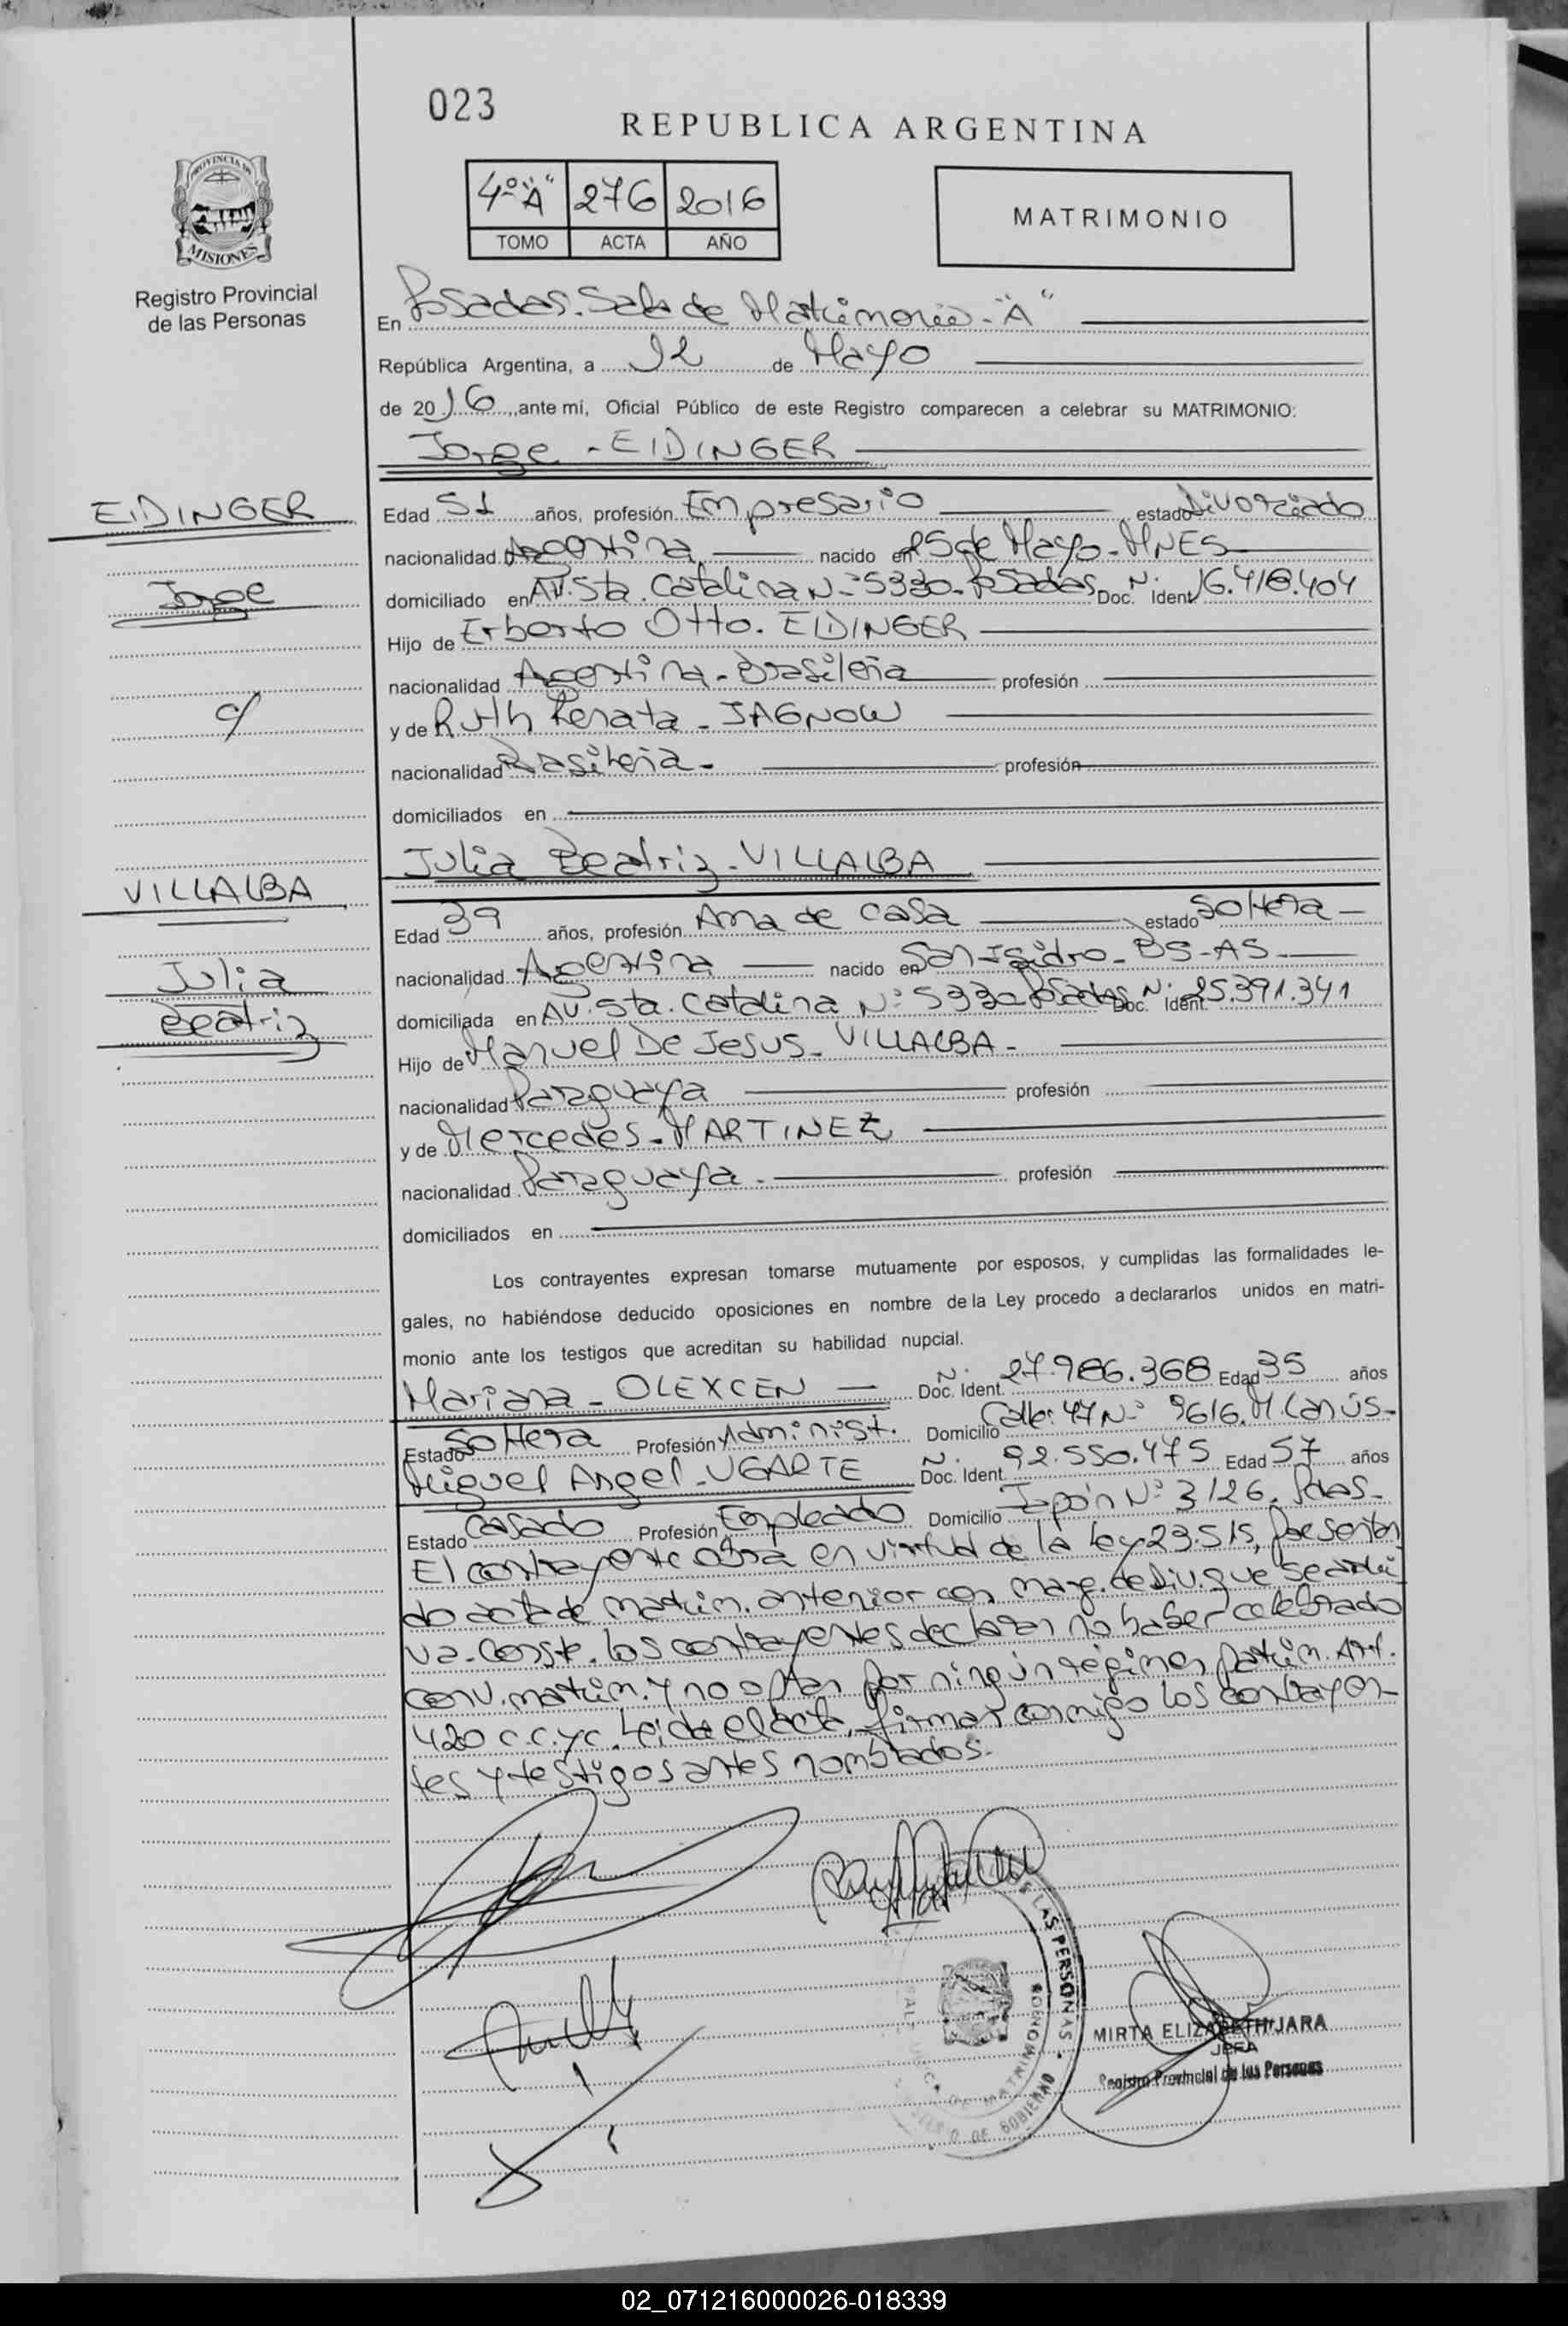 023
REPUBLICA ARGENTINA
4º "A" 276 2016
TOMO ACTA AÑO
MATRIMONIO
PROVINCIA DE
MISIONES
Registro Provincial
de las Personas
En Posadas. Sala de Matrimonio - "A"
República Argentina, a 12 de Mayo
de 2016, ante mi, Oficial Público de este Registro comparecen a celebrar su MATRIMONIO:
Jorge - EIDINGER
EIDINGER
Jorge
c/
VILLALBA
Julia
Beatriz
Edad 51 años, profesión Empresario estado Divorciado
nacionalidad Argentina nacido en 25 de Mayo - MNES
domiciliado en AV. Sta. Catalina Nº 5330 - Posadas Doc. Ident. Nº 16.418.404
Hijo de Erberto Otto. EIDINGER
nacionalidad Argentina - Brasileña profesión
y de Ruth Renata - JAGNOW
nacionalidad Brasileña - profesión
domiciliados en
Julia Beatriz - VILLALBA
Edad 39 años, profesión Ama de casa estado Soltera
nacionalidad Argentina nacido en San Isidro - BS - AS -
domiciliada en AV. Sta. Catalina Nº 5330 Posadas Doc. Ident. Nº 25.391.341
Hijo de Manuel De Jesus - VILLALBA -
nacionalidad Paraguaya profesión
y de Mercedes - MARTINEZ
nacionalidad Paraguaya - profesión
domiciliados en
Los contrayentes expresan tomarse mutuamente por esposos, y cumplidas las formalidades le-
gales, no habiéndose deducido oposiciones en nombre de la Ley procedo a declararlos unidos en matri-
monio ante los testigos que acreditan su habilidad nupcial.
Mariana - OLEXCEN Doc. Ident. Nº 27.986.368 Edad 35 años
Estado Soltera Profesión Administ. Domicilio Calle: 47 Nº 9616. M. Lanús -
Miguel Angel - UGARTE Doc. Ident. Nº 92.550.475 Edad 57 años
Estado Casado Profesión Empleado Domicilio Japón Nº 3126. Pdas -
El contrayente obra en virtud de la Ley 23.515, presentan
do acta de matrim. anterior con marg. de Div. que se archi
va. Conste. los contrayentes declaran no haber celebrado
conv. matrim. y no optan por ningún régimen patrim. Art.
420 c.c. y c. Leida el acta, firman conmigo los contrayen-
tes y testigos antes nombrados.
LAS PERSONAS
DE GOBIERNO
MIRTA ELIZABETH JARA
JEFA
Registro Provincial de las Personas
02_071216000026-018339